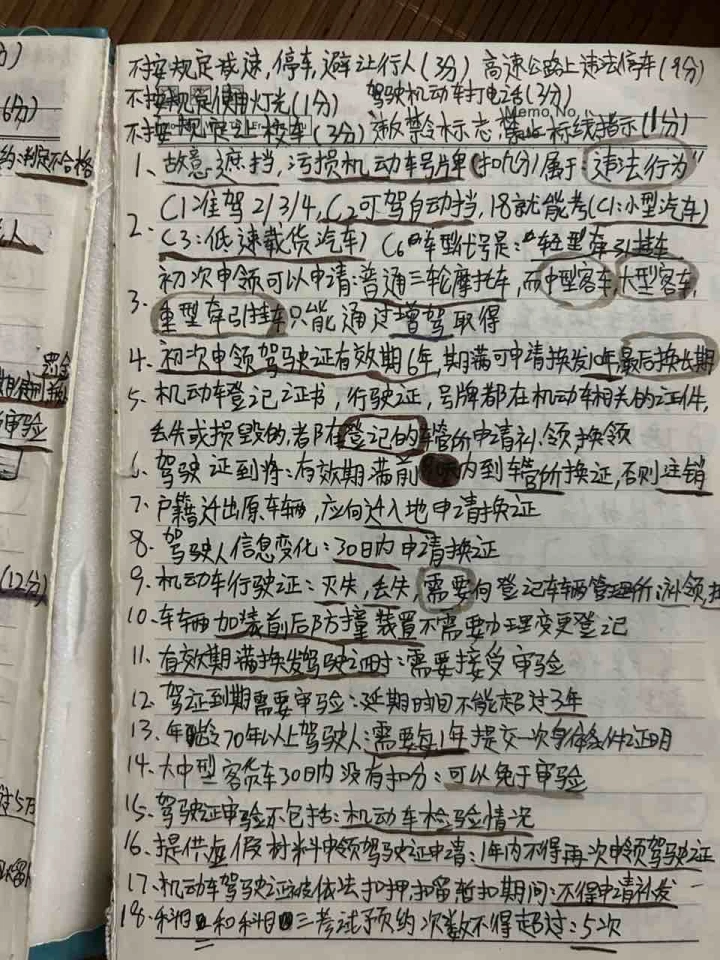 不按规定减速,停车,避让行人(3分) 高速公路上违法停车(9分)
不按规定使用灯光(1分) 驾驶机动车打电话(3分)
Memo No.
不按规定让校车(3分) 违反禁令标志 禁止标线指示(1分)
1、故意遮挡,污损机动车号牌单(扣九分)属于:违法行为"
2. C1准驾2/3/4,C2可驾自动挡,18就能考(C1:小型汽车)
C3:低速载货汽车) C6车型代号是:轻型牵引挂车
3. 初次申领可以申请:普通三轮摩托车,而中型客车,大型客车,
重型牵引挂车只能通过增驾取得
4、初次申领驾驶证有效期6年,期满可申请换发10年最后换长期
5、机动车登记证书,行驶证,号牌都在机动车相关的证件,
丢失或损毁的,都在登记的车管所申请补.领,换领
6、驾驶证到期:有效期满前 内到车管所换证,否则注销
7、户籍迁出原车辆,应向迁入地申请换证
8、驾驶人信息变化:30日内申请换证
9、机动车行驶证:灭失,丢失,需要向登记车辆管理所:补领
10、车辆加装前后防撞装置不需要办理变更登记
11、有效期满换发驾驶证时:需要接受审验
12、驾证到期需要审验:延期时间不能超过3年
13、年龄70年以上驾驶人:需要每1年提交一次身体条件证明
14、大中型客货车30日内没有扣分:可以免于审验
15、驾驶证审验不包括:机动车检验情况
16、提供虚假材料申领驾驶证申请:1年内不得再次申领驾驶证
17、机动车驾驶证被依法扣押扣留暂扣期间:不得申请补发
18、科目二和科目三考试预约次数不得超过:5次
6分)
判定不合格
人
罚金
审验
(12分)
5万